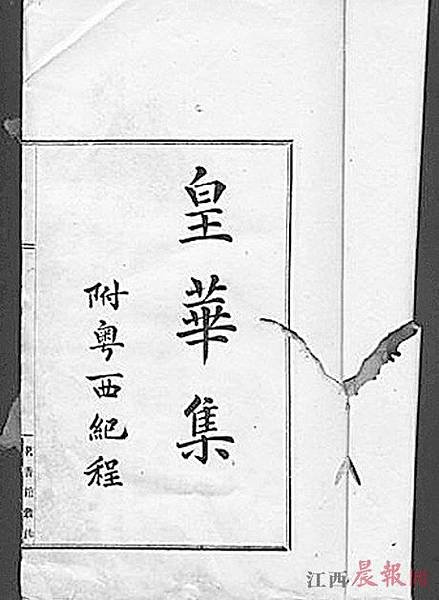 皇華集
附粤西紀程
江西晨報网